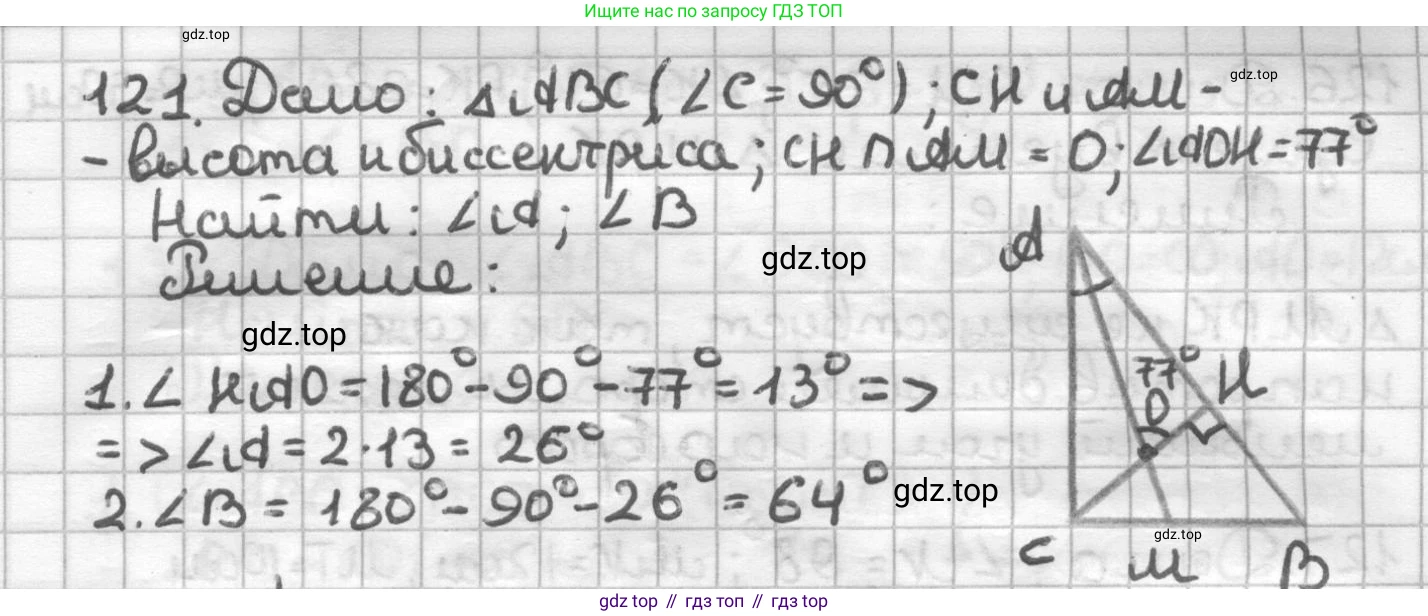 Ищите нас по запросу ГДЗ ТОП
gdz.top
gdz.top
121. Дано: △ABC (∠C = 90°); CH и AM -
- высота и биссектриса; CH ∩ AM = O; ∠AOH = 77°
Найти: ∠A; ∠B
gdz.top
Решение:
gdz.top
1. ∠ HAO = 180° - 90° - 77° = 13° =>
=> ∠A = 2 · 13 = 26°
2. ∠B = 180° - 90° - 26° = 64°
gdz.top
A
77°
H
O
C
M
B
gdz.top
gdz top // гдз топ // gdz top